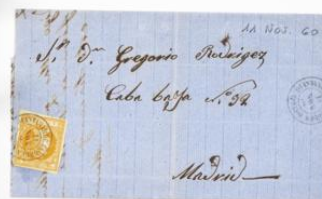 11 NOV. 60
Sr. Dn. Gregorio Rodrigez
Caba baja N.º 32
Madrid